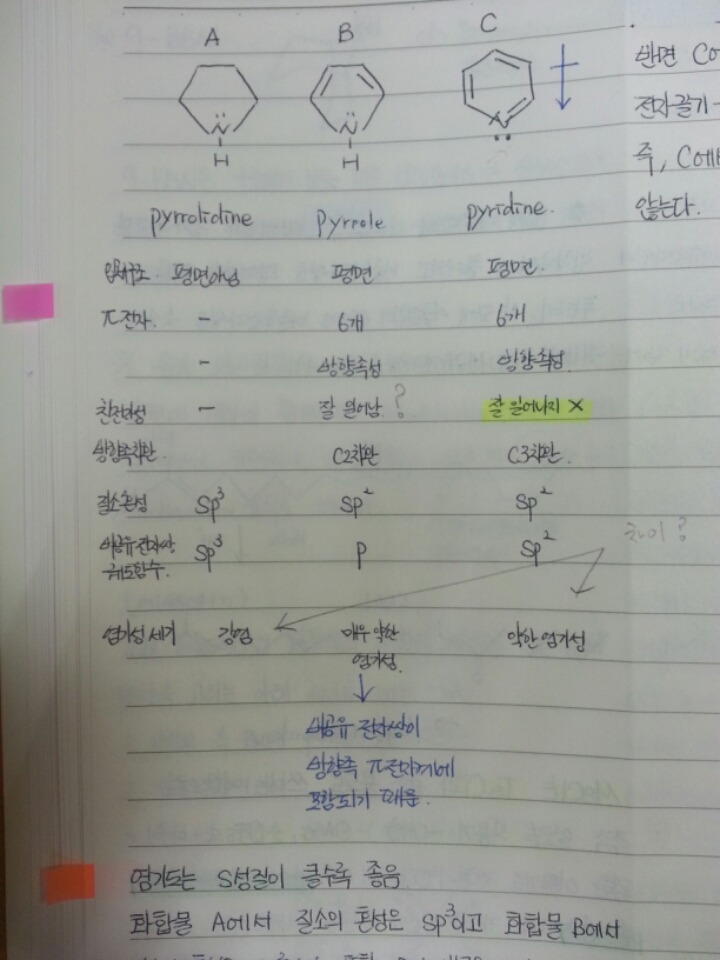 A B C
N H
N H
N
pyrrolidine pyrrole pyridine.
입체구조 평면아님 평면. 평면.
π전자. - 6개 6개
- 방향족성 방향족성.
친전자성 - 잘 일어남 ? 잘 일어나지 X
방향족치환. C2치환 C3치환.
질소혼성 sp³ sp² sp²
비공유 전자쌍 궤도함수. sp³ p sp²
차이?
염기성 세기 강염 매우 약한 염기성. 약한 염기성
비공유 전자쌍이
방향족 π전자계에
포함되기 때문.
염기도는 S성질이 클수록 좋음
화합물 A에서 질소의 혼성은 sp³이고 화합물 B에서
반면 Co
전자끌기
즉, C에
않는다.